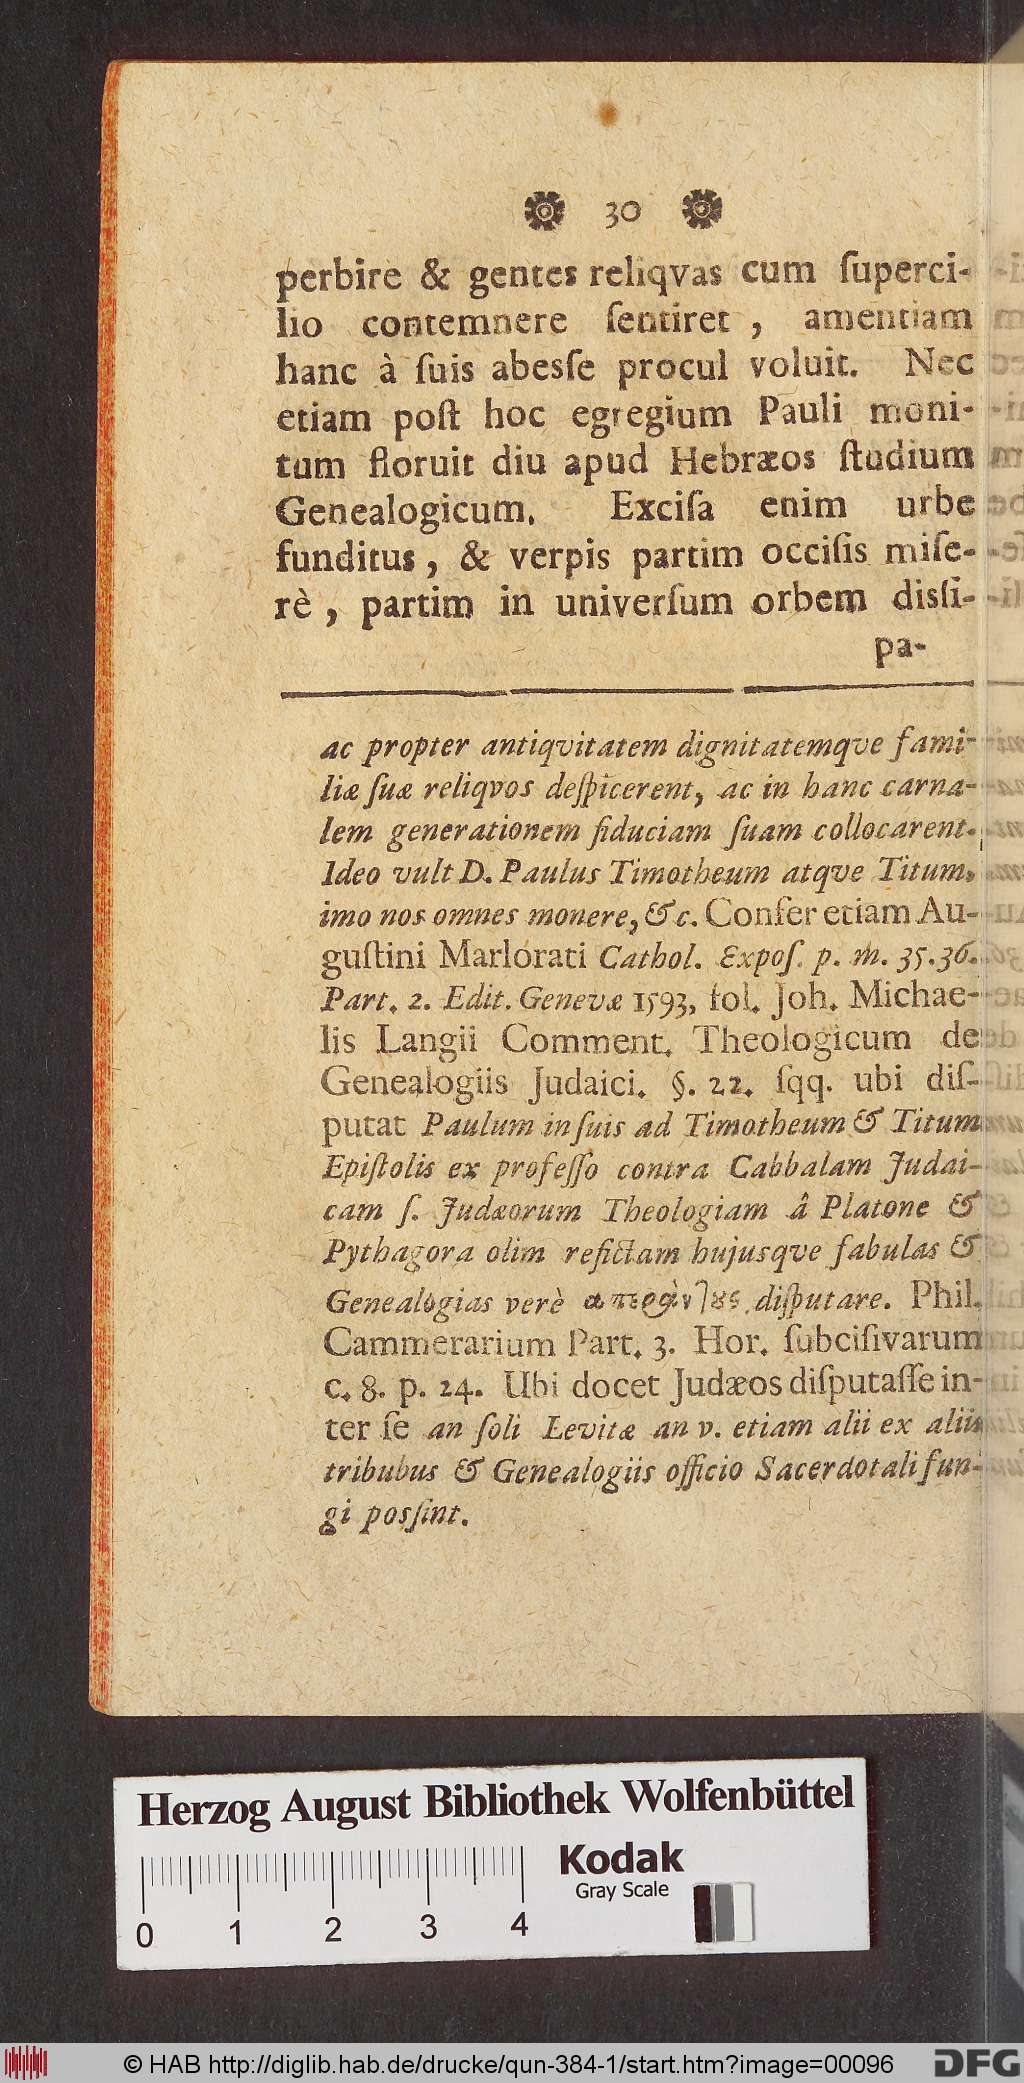 30
perbire & gentes reliqvas cum ſuperci-
lio contemnere ſentiret , amentiam
hanc à ſuis abesſe procul voluit. Nec
etiam poſt hoc egregium Pauli moni-
tum floruit diu apud Hebræos ſtudium
Genealogicum. Exciſa enim urbe
funditus, & verpis partim occiſis miſe-
rè , partim in univerſum orbem disſi-
pa-
ac propter antiqvitatem dignitatemqve fami-
liæ ſuæ reliqvos deſpicerent, ac in hanc carna-
lem generationem fiduciam ſuam collocarent.
Ideo vult D. Paulus Timotheum atqve Titum,
imo nos omnes monere, &c. Confer etiam Au-
guſtini Marlorati Cathol. Expoſ. p. m. 35. 36.
Part. 2. Edit. Genevæ 1593, fol. Joh. Michae-
lis Langii Comment. Theologicum de
Genealogiis Judaici. §. 22. ſqq. ubi diſ-
putat Paulum in ſuis ad Timotheum & Titum
Epiſtolis ex profeſſo contra Cabbalam Judai-
cam ſ. Judæorum Theologiam â Platone &
Pythagora olim refictam hujusqve fabulas &
Genealogias verè diſputare. Phil.
Cammerarium Part. 3. Hor. ſubciſivarum
c. 8. p. 24. Ubi docet Judæos diſputaſſe in-
ter ſe an ſoli Levitæ an v. etiam alii ex aliis
tribubus & Genealogiis officio Sacerdotali fun-
gi posſint.
Herzog August Bibliothek Wolfenbüttel
Kodak
Gray Scale
0 1 2 3 4
© HAB http://diglib.hab.de/drucke/qun-384-1/start.htm?image=00096
DFG